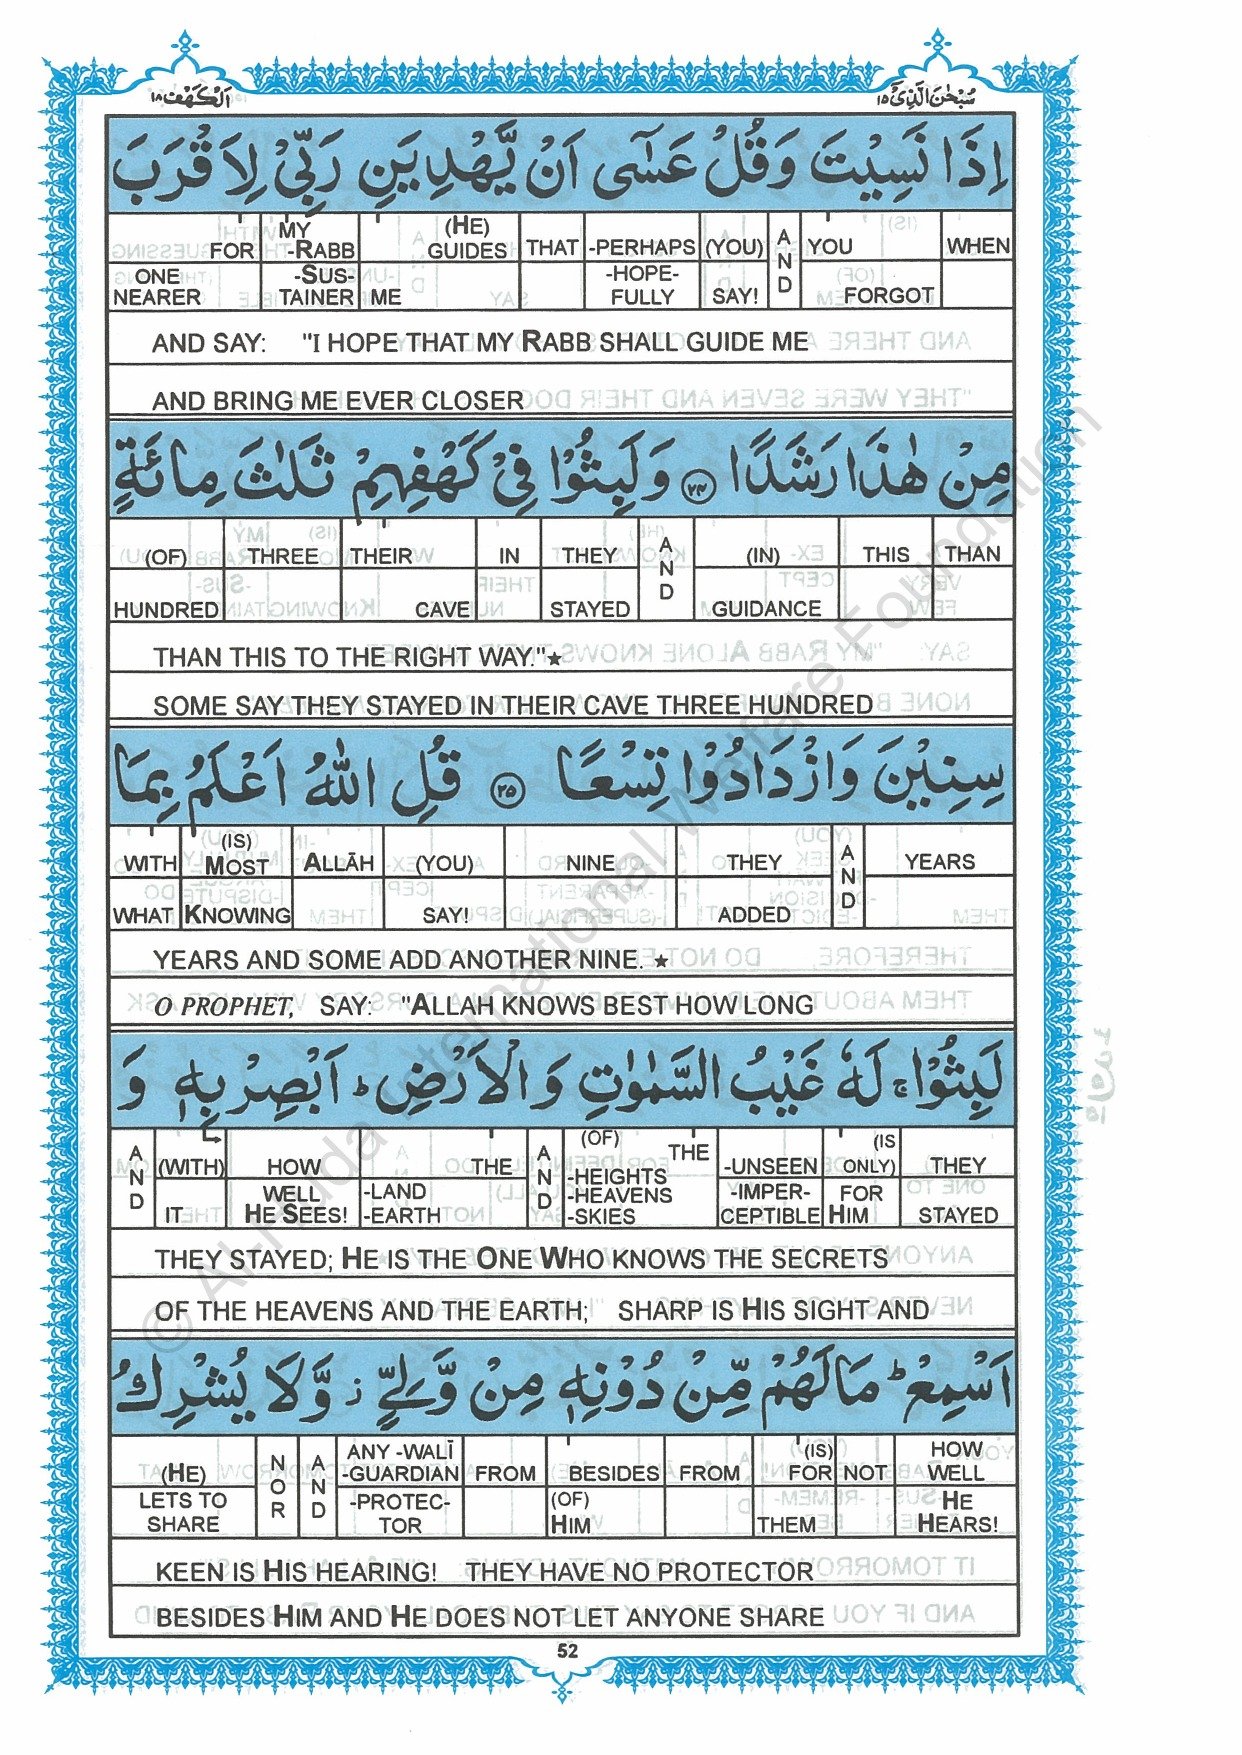 اَلْكَهْف ١٨ سُبْحٰنَ الَّذِیْٓ ١٥
اِذَا نَسِیْتَ وَقُلْ عَسٰٓی اَنْ یَّهْدِیَنِ رَبِّیْ لِاَقْرَبَ
FOR MY -RABB (HE) GUIDES THAT -PERHAPS (YOU) AND YOU WHEN
ONE NEARER -SUS- TAINER ME -HOPE- FULLY SAY! FORGOT
AND SAY: "I HOPE THAT MY RABB SHALL GUIDE ME
AND BRING ME EVER CLOSER
مِنْ هٰذَا رَشَدًا ٢٤ وَلَبِثُوْا فِیْ كَهْفِهِمْ ثَلٰثَ مِائَةٍ
(OF) THREE THEIR IN THEY AND (IN) THIS THAN
HUNDRED CAVE STAYED GUIDANCE
THAN THIS TO THE RIGHT WAY."★
SOME SAY THEY STAYED IN THEIR CAVE THREE HUNDRED
سِنِیْنَ وَازْدَادُوْا تِسْعًا ٢٥ قُلِ اللّٰهُ اَعْلَمُ بِمَا
WITH (IS) MOST ALLĀH (YOU) NINE THEY AND YEARS
WHAT KNOWING SAY! ADDED
YEARS AND SOME ADD ANOTHER NINE. ★
O PROPHET, SAY: "ALLAH KNOWS BEST HOW LONG
لَبِثُوْا ۚ لَهٗ غَیْبُ السَّمٰوٰتِ وَالْاَرْضِ ؕ اَبْصِرْ بِهٖ وَ
AND (WITH) HOW THE AND (OF) THE -HEIGHTS -UNSEEN (IS ONLY) THEY
IT WELL HE SEES! -LAND -EARTH -HEAVENS -SKIES -IMPER- CEPTIBLE FOR HIM STAYED
THEY STAYED; HE IS THE ONE WHO KNOWS THE SECRETS
OF THE HEAVENS AND THE EARTH; SHARP IS HIS SIGHT AND
اَسْمِعْ ؕ مَا لَهُمْ مِّنْ دُوْنِهٖ مِنْ وَّلِیٍّ ز وَّلَا یُشْرِكُ
(HE) NOR AND ANY -WALĪ -GUARDIAN FROM BESIDES FROM (IS) FOR NOT HOW WELL
LETS TO SHARE -PROTEC- TOR (OF) HIM THEM HE HEARS!
KEEN IS HIS HEARING! THEY HAVE NO PROTECTOR
BESIDES HIM AND HE DOES NOT LET ANYONE SHARE
52
© Al-Huda International Welfare Foundation